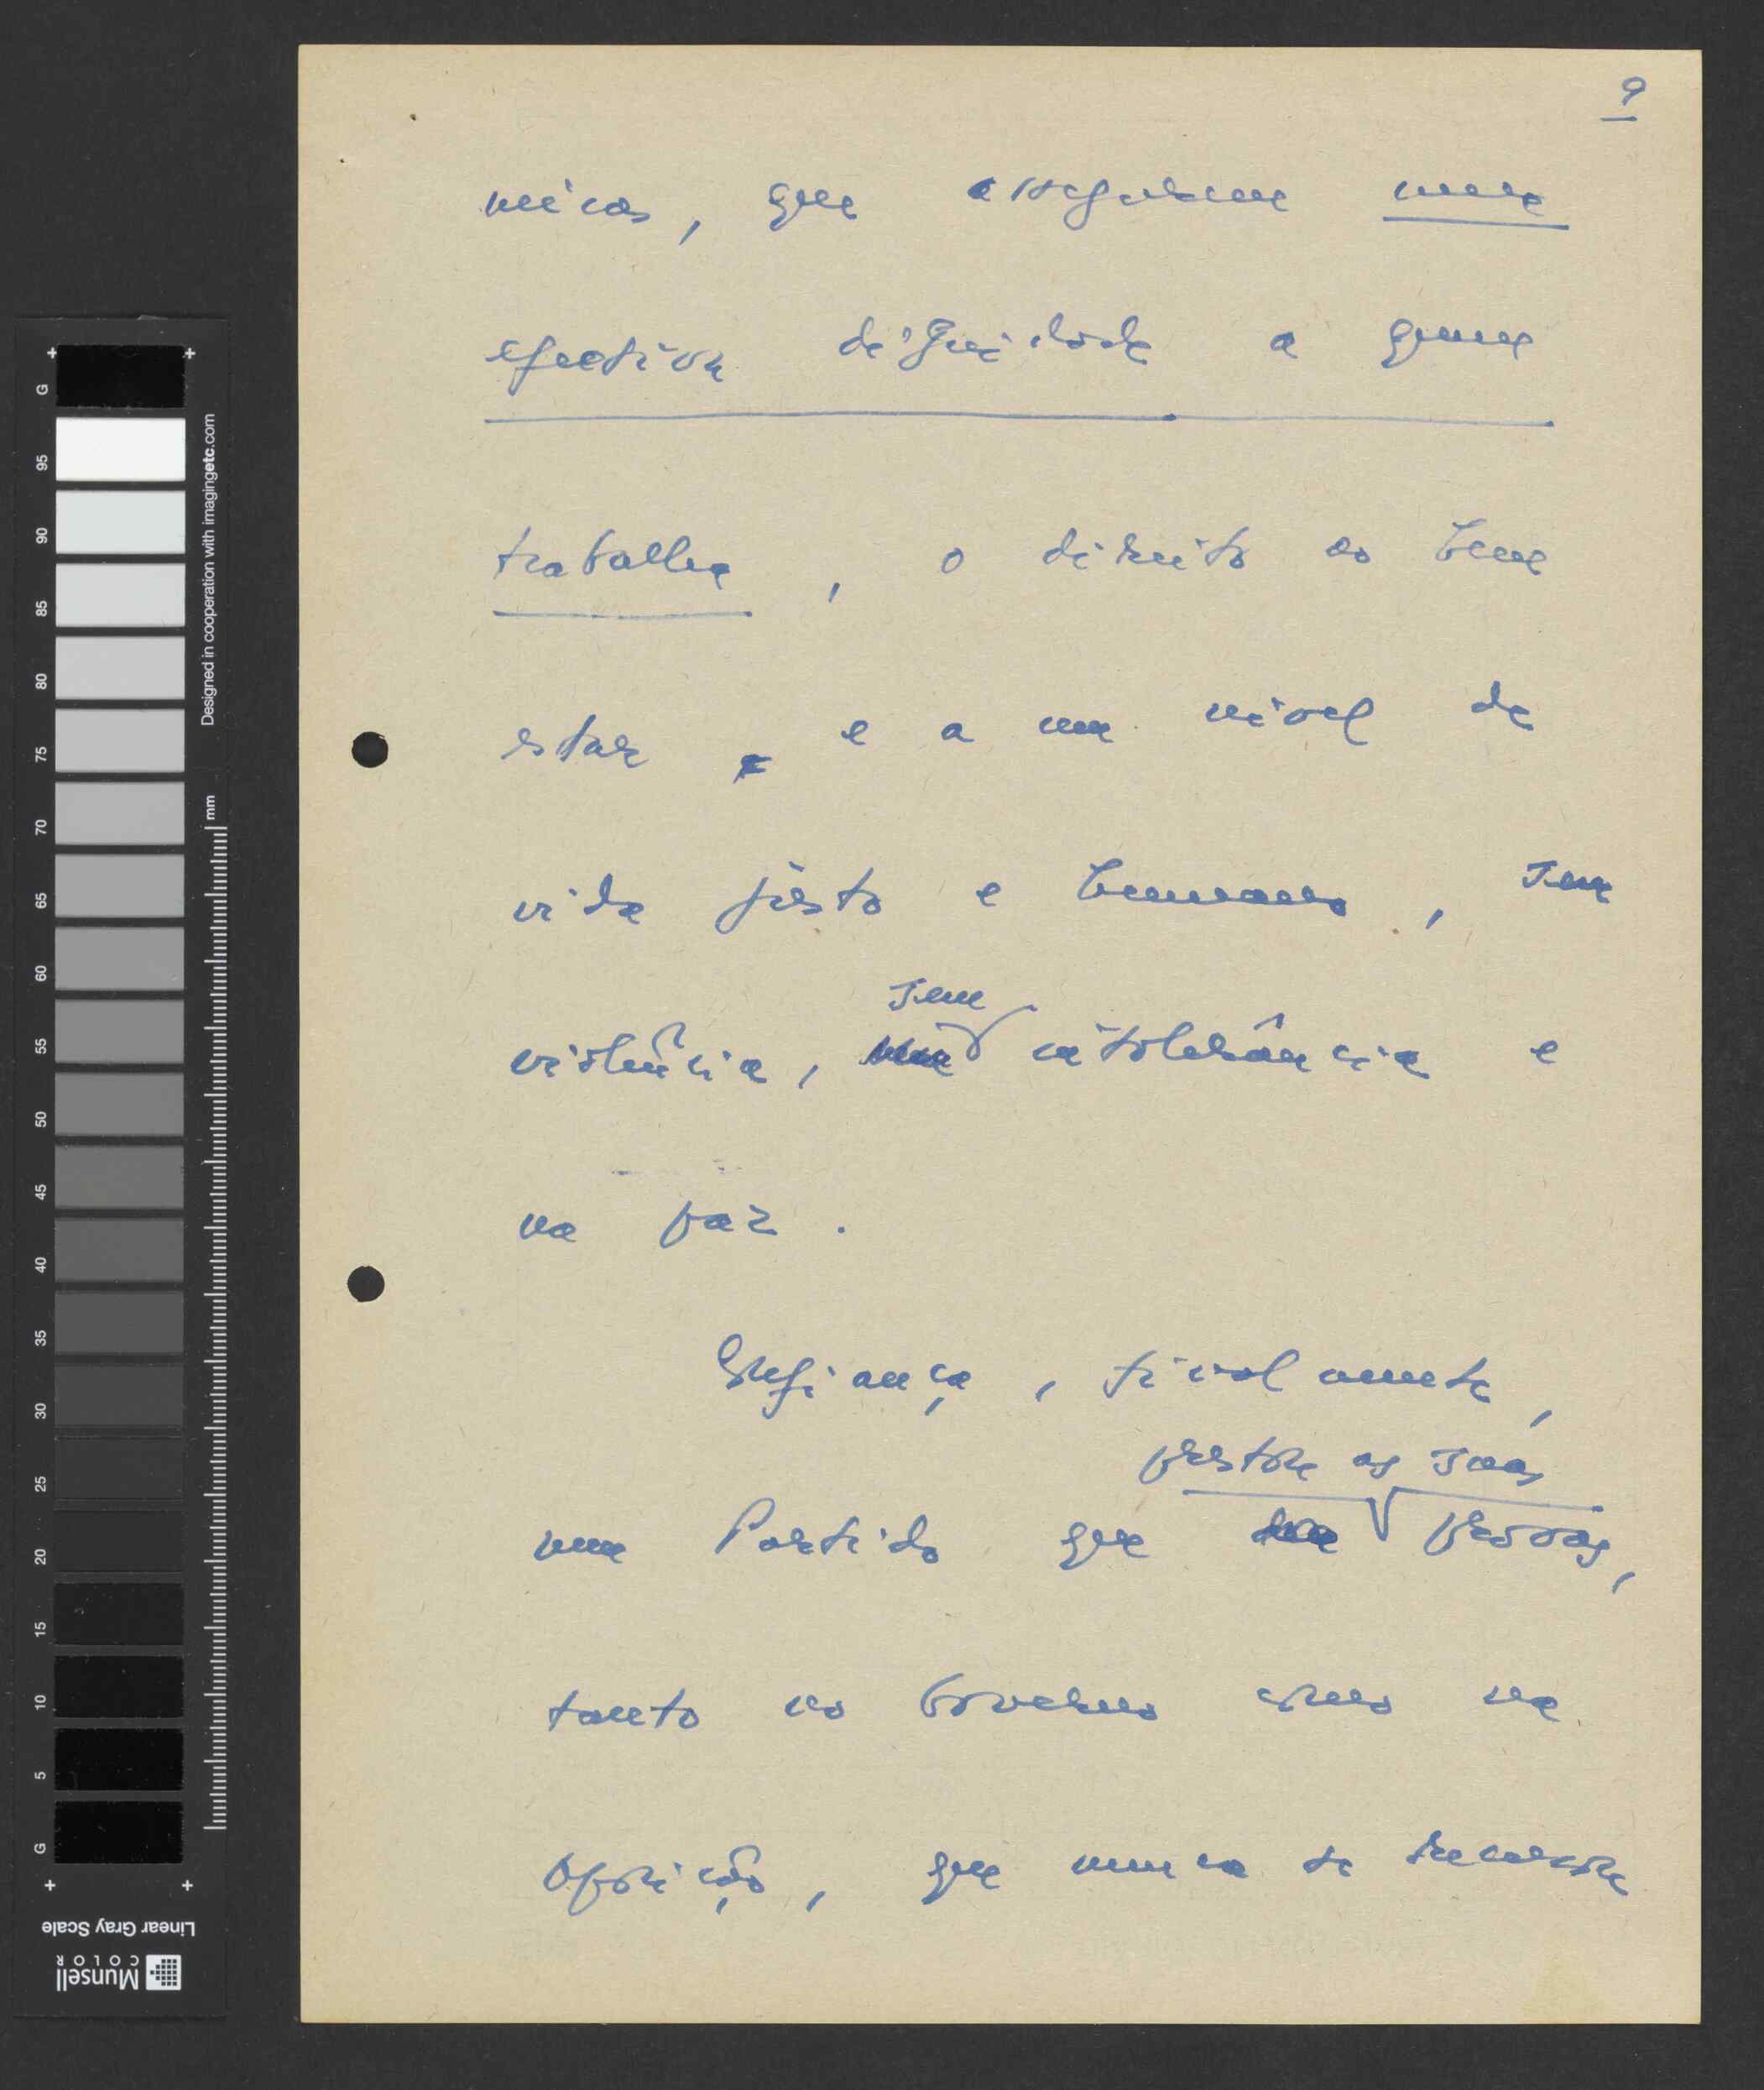 9
micas, que assegurem uma
efectiva dignidade a quem
trabalha, o direito ao bem
estar e a um nível de
vida justo e humano, sem
sem
violência, intolerância e
na paz.
Confiança, finalmente,
prestou as suas
num Partido que provas,
tanto no Governo como na
Oposição, que nunca se recusou
G
95
90
85
80
75
70
65
60
55
50
45
40
35
30
25
20
15
10
5
G
Designed in cooperation with imagingetc.com
mm
Linear Gray Scale
Munsell
COLOR